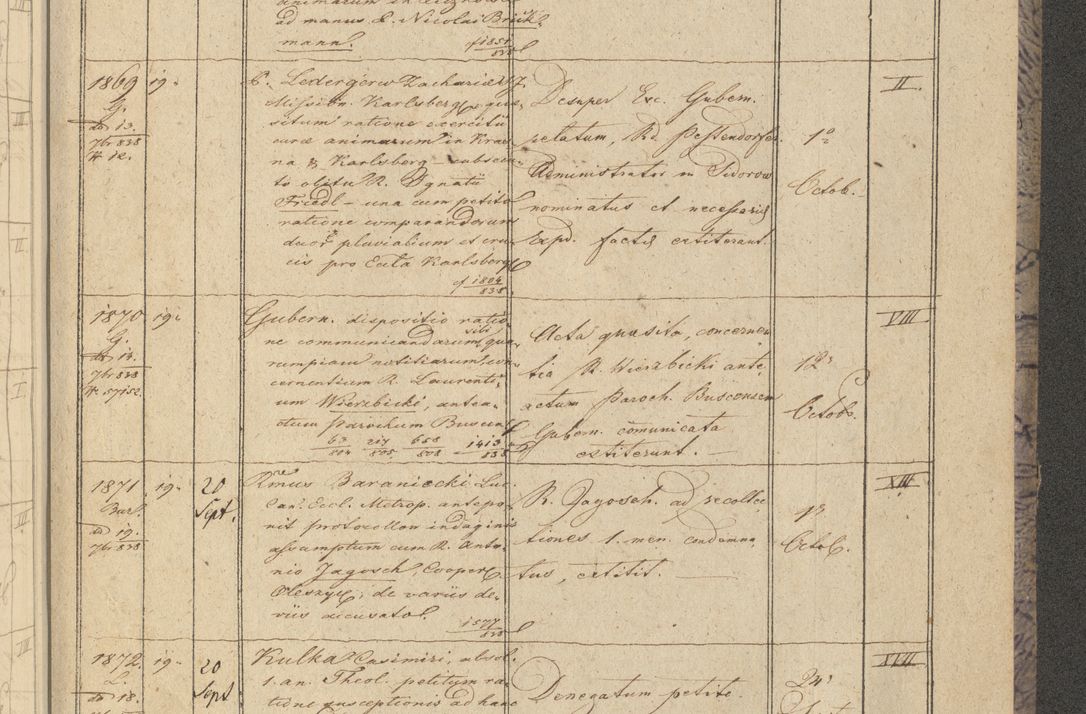 ad manus P. Nicolai Brück
mann.
1869 19.
P. Ledergerw Zachariae
Mission. Karlsberg, quae
situm ratione exercitii
curae animarum in Kras
na & Karlsberg – subsecu
to obitu R. Ignatii
Friedl – una cum petito
ratione comparandorum
duor. pluvialium et cru
cis pro Eccla Karlsberg
cf 1804/838
Desuper Exc. Gubern.
pelatum, Rd Pestendorfer
Administrator in Sidorow
nominatus et necessariae
Expd. factae extiterant.
1a
Octob.
II
G.
dd 13.
7br 838
1870 19.
Gubern. dispositio ratio
ne communicandarum sibi qua
rumpiam notitiarum con
cernentium R. Laurenti
um Wierzbicki, antea
ctum parochum Buscens.
63/804 217/805 658/808 1413/838
Acta quaesita, concernen
tia R. Wierzbicki ante
actum Paroch. Busconsem
Gubern. comunicata
extiterunt. —
12a
Octob.
VIII
G.
dd 13.
7br 838
№ 57152
1871 19. 20
Sept.
Rmus Baraniecki Luc.
Can. Eccl. Metrop. antepo
nit protocollon indaginis
assumptum cum R. Anto
nio Jagosch, Cooper.
Oleszyc, de variis de
viis accusato.
1577/838
R. Jagosch. ad recolle
ctiones 1. men. condemna
tus, extitit. —
1a
Octob.
XIII
dd 19.
7br 838
1872 19. 20
Sept
Kulka Casimiri, absol.
1. an. Theol. petitum ra
tione susceptionis ad hanc
Denegatum petito.
24a
XVII
L.
dd 18.